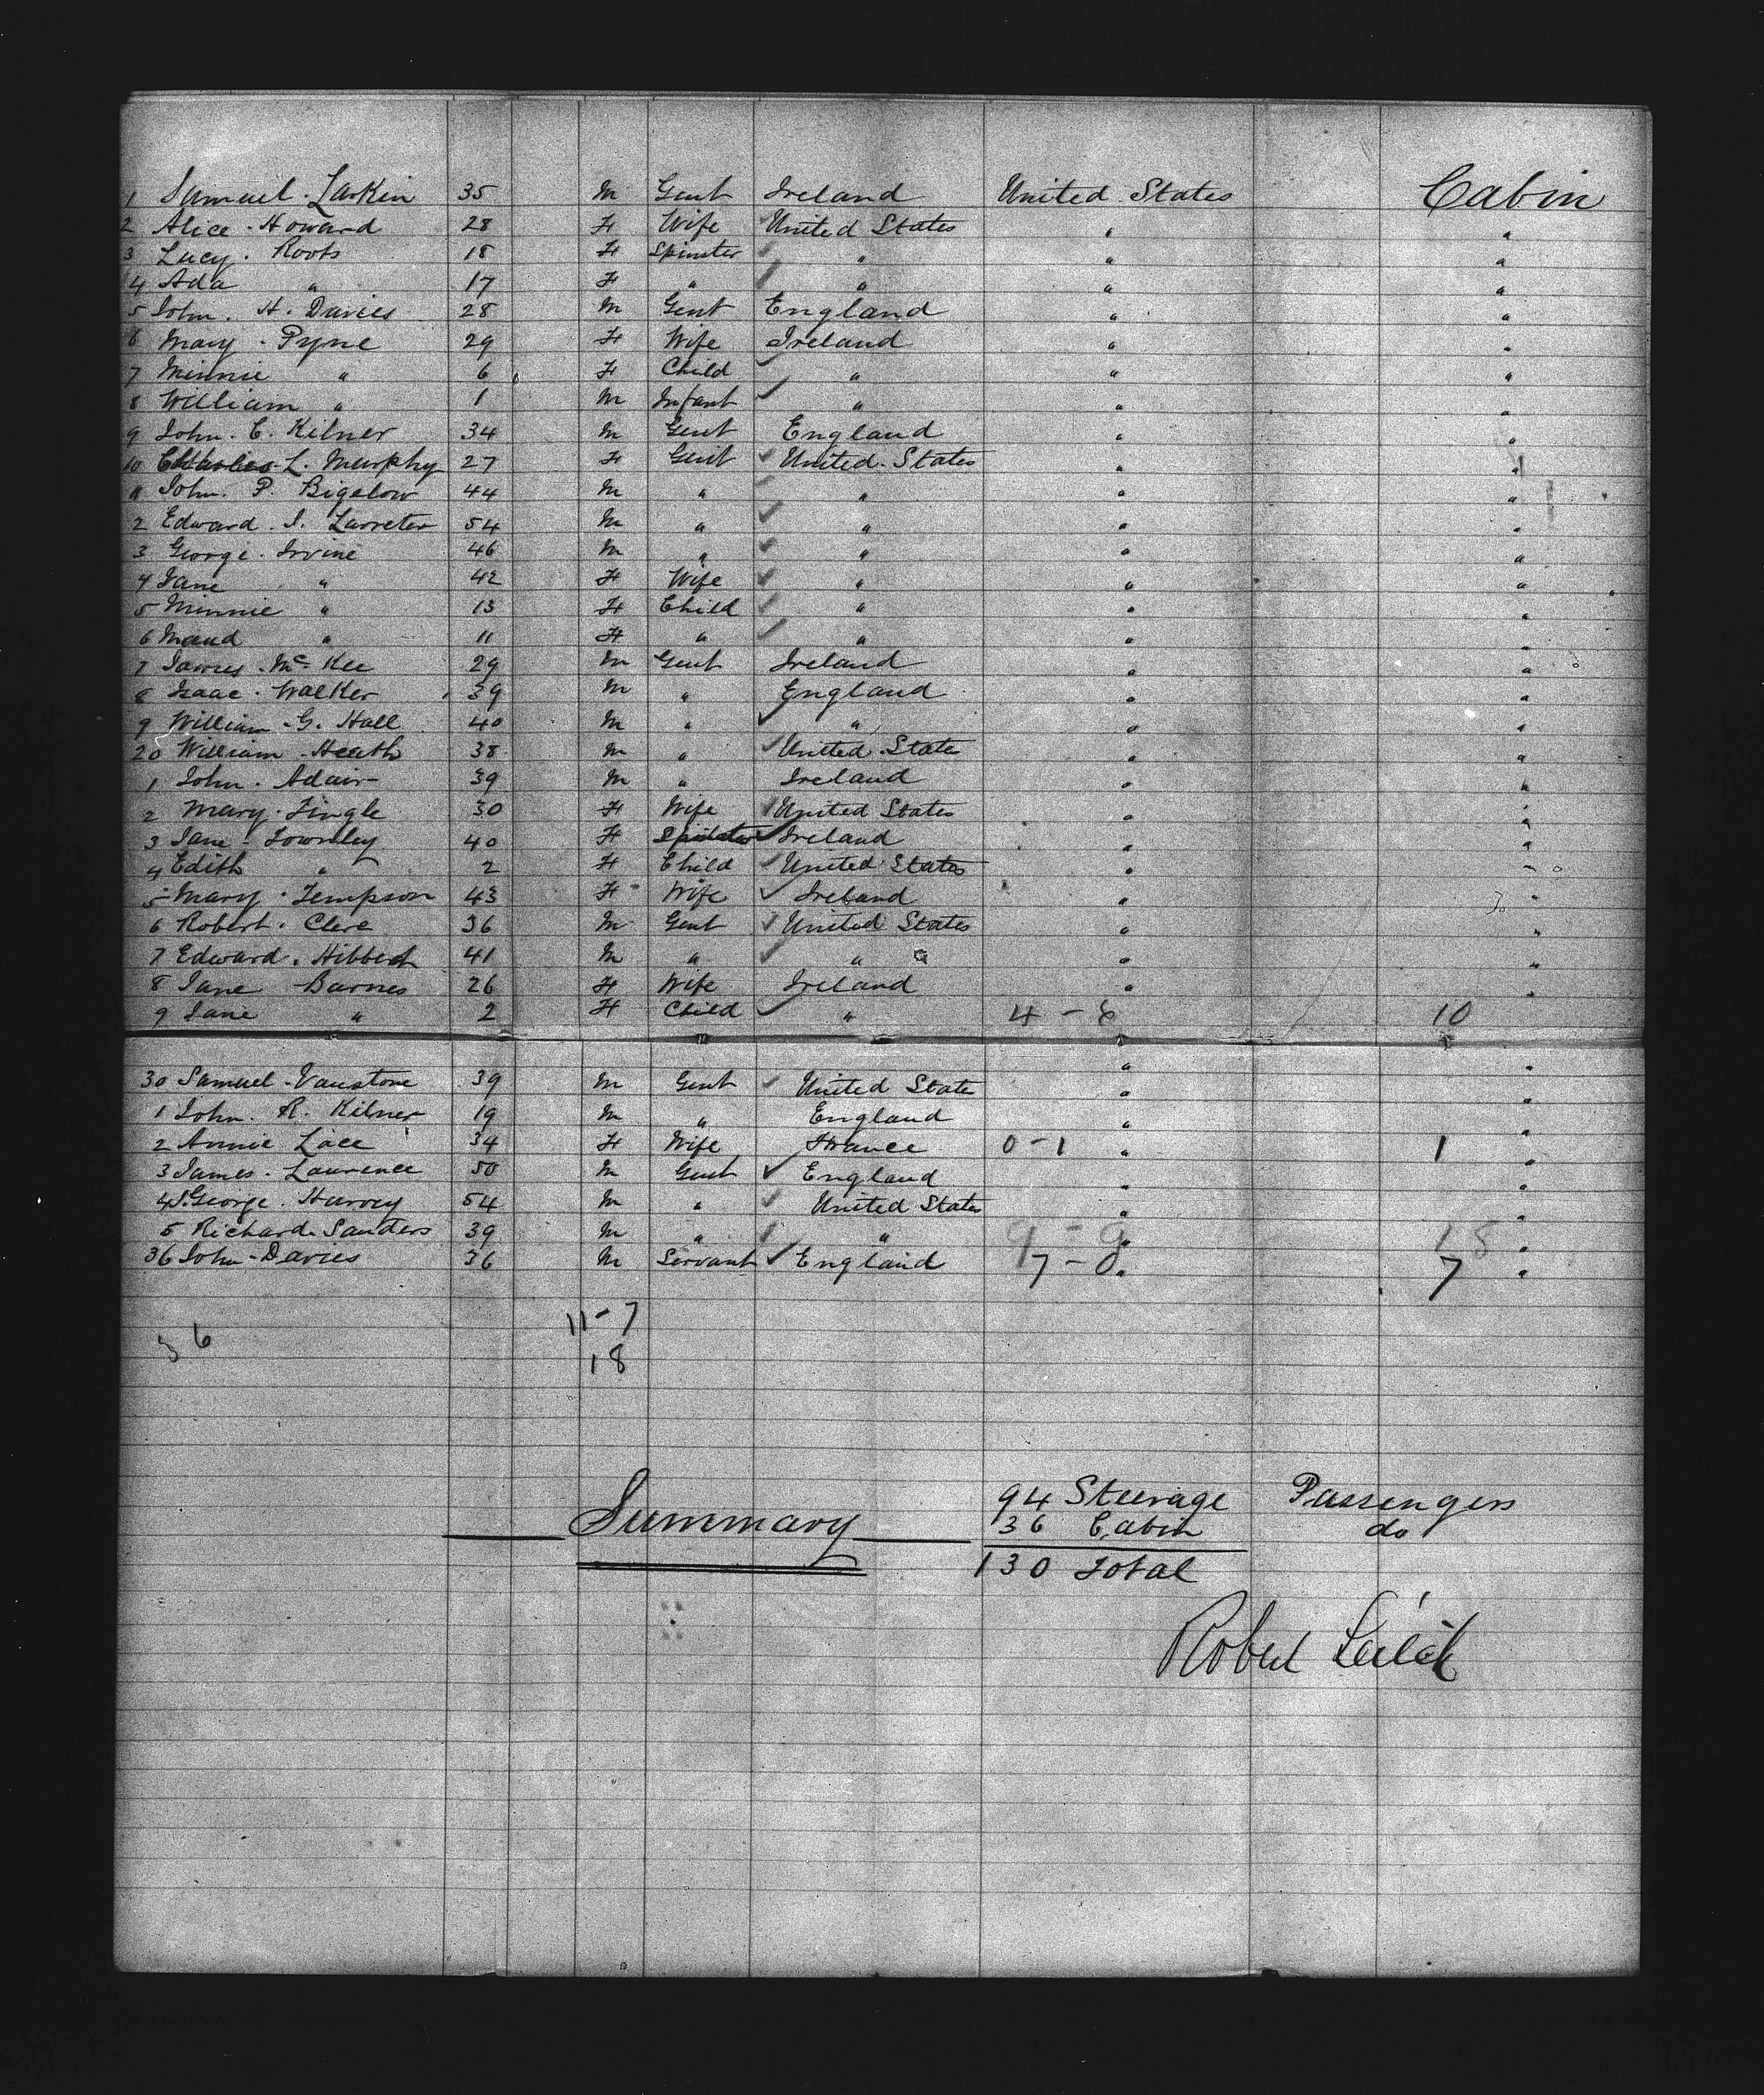 1 Samuel Larkin 35 M Gent Ireland United States Cabin
2 Alice Howard 28 F Wife United States " "
3 Lucy Roots 18 F Spinster " " "
4 Ada " 17 F " " " "
5 John H. Davies 28 M Gent England " "
6 Mary Pyne 29 F Wife Ireland " "
7 Minnie " 6 F Child " " "
8 William " 1 M Infant " " "
9 John C. Kilner 34 M Gent England " "
10 L. Murphy 27 F Gent United States " "
11 John P. Bigelow 44 M " " " "
2 Edward 54 M " " " "
3 George Irvine 46 M " " " "
4 Jane " 42 F Wife " " "
5 Minnie " 13 F Child " " "
6 Maud " 11 F " " " "
7 James McKee 29 M Gent Ireland " "
8 Isaac Walker 39 M " England " "
9 William G. Hall 40 M " " " "
20 William Heath 38 M " United State " "
1 John Adair 39 M " Ireland " "
2 Mary Tingle 30 F Wife United States " "
3 Jane Townley 40 F Spinster Ireland " "
4 Edith " 2 F Child United States " "
5 Mary Tempson 43 F Wife Ireland " "
6 Robert Clere 36 M Gent United States " "
7 Edward 41 M " " " " "
8 Jane Barnes 26 F Wife Ireland " "
9 Jane " 2 F Child " 4 - 6 10
30 Samuel Vanstone 39 M Gent United State " "
1 John R. Kilner 19 M " England " "
2 Annie Lace 34 F Wife France 0 - 1 " 1 "
3 James Laurence 50 M Gent England " "
4 St. George Harvey 54 M " United States " "
5 Richard Sanders 39 M " " 9 - 9 " 18 "
36 John Davies 36 M Servant England 7 - 0 " 7 "
11 - 7
36
18
94 Steerage Passengers
Summary 36 Cabin do
130 Total
Robert Leitch